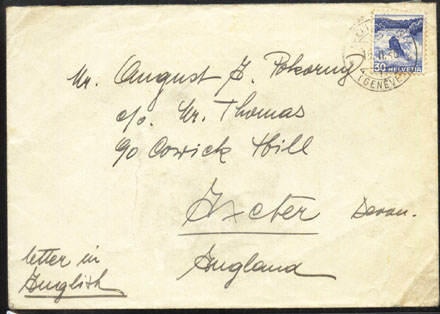 30 HELVETIA
(GENÈVE)
Mr. August J. Pokorny
c/o. Mr. Thomas
90 Cowick Hill
Exeter Devon.
England
letter in
English